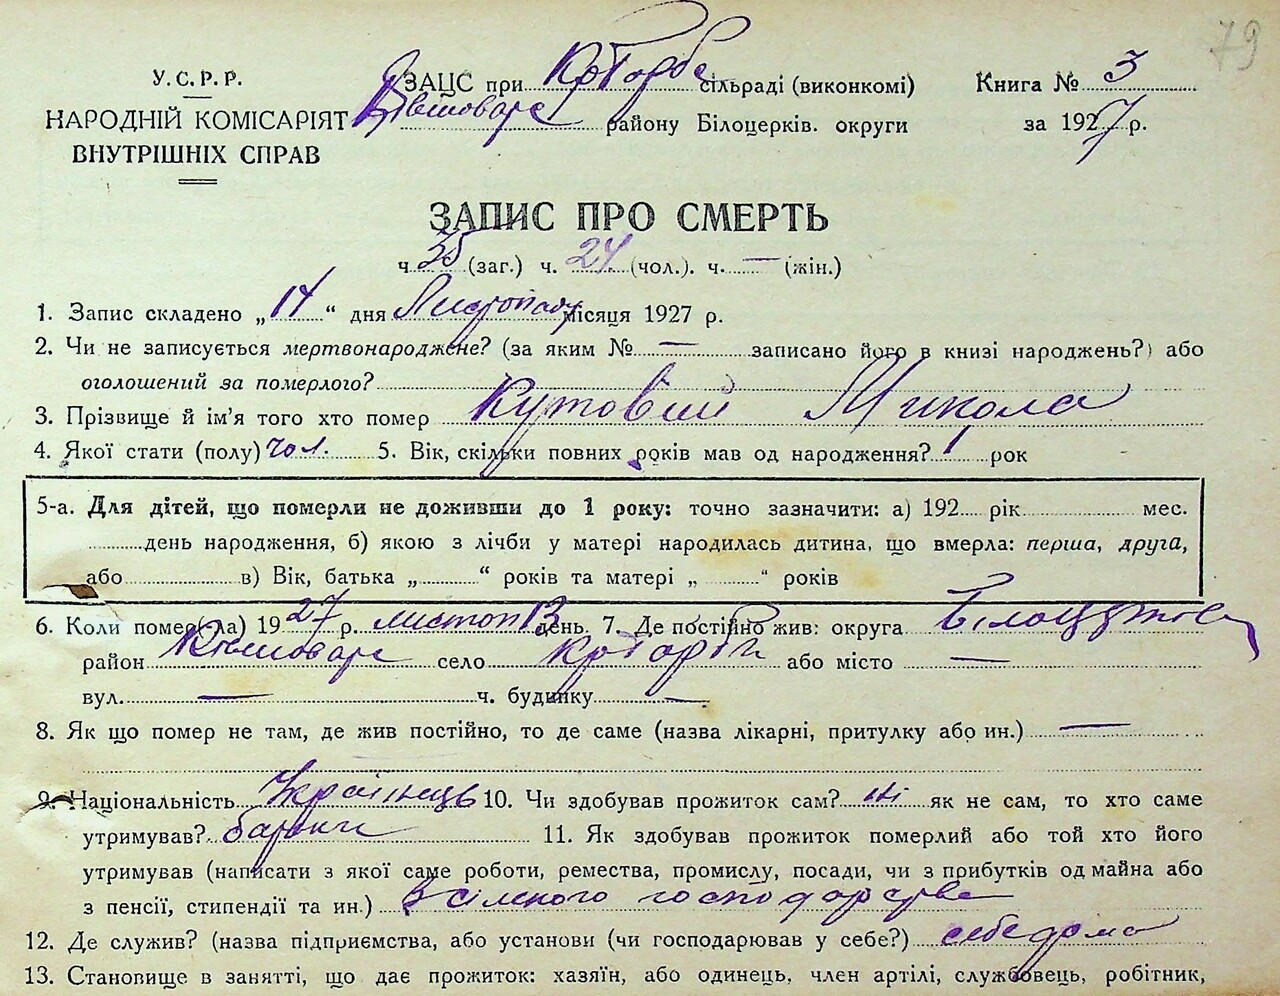 79
У.С.Р.Р.
НАРОДНІЙ КОМІСАРІЯТ
ВНУТРІШНІХ СПРАВ
ЗАЦС при Кр Торбс сільраді (виконкомі)
району Білоцерків. округи
Книга № 3
за 1927 р.
ЗАПИС ПРО СМЕРТЬ
ч 35 (заг.) ч. 24 (чол.). ч. — (жін.)
1. Запис складено „14“ дня Листопаду місяця 1927 р.
2. Чи не записується мертвонароджене? (за яким № — записано його в книзі народжень?) або
оголошений за померлого?
3. Прізвище й ім'я того хто помер Кутовий Микола
4. Якої стати (полу) чол. 5. Вік, скільки повних років мав од народження? 1 рок
5-а. Для дітей, що померли не доживши до 1 року: точно зазначити: а) 192 рік мес.
день народження, б) якою з лічби у матері народилась дитина, що вмерла: перша, друга,
або в) Вік, батька „ “ років та матері „ “ років
6. Коли помер(ла) 1927 р. листоп 13 день. 7. Де постійно жив: округа
район село або місто —
вул. — ч. будинку —
8. Як що помер не там, де жив постійно, то де саме (назва лікарні, притулку або ин.) —
9. Національність Українець 10. Чи здобував прожиток сам? ні як не сам, то хто саме
утримував? батьки 11. Як здобував прожиток померлий або той хто його
утримував (написати з якої саме роботи, ремества, промислу, посади, чи з прибутків од майна або
з пенсії, стипендії та ин.) З сільского господарства
12. Де служив? (назва підприємства, або установи (чи господарював у себе?) себе дома
13. Становище в занятті, що дає прожиток: хазяїн, або одинець, член артілі, службовець, робітник,